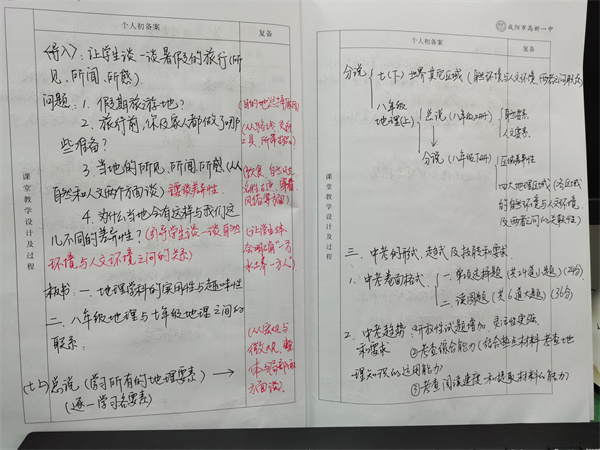 个人初备案
复备
课堂教学设计及过程
<导入>:让学生谈一谈暑假的旅行(所
见、所闻、所感)
问题:1.假期旅游地?
2.旅行前,你及家人都做了哪
些准备?
3.当地的所见、所闻、所感(从
自然和人文两个方面谈)
4.为什么当地会有这样与我们这
儿不同的差异性?(引导学生谈一谈自然
环境与人文环境之间的关系)
板书:一.地理学科的实用性与趣味性
二.八年级地理与七年级地理之间的
联系:
(七上)总说(学习所有的地理要素)→
(逐一学习各要素)
(让学生体
会哪句“一方
水土养一方人”)
(从宏观与
微观,整
体与局部两
方面谈)
咸阳市高新一中
个人初备案
复备
课堂教学设计及过程
分说
七(下)世界其它区域(自然环境与人文环境,两者之间联系)
八年级
地理(上)
总说(八年级上册)
自然要素
人文要素
分说(八年级下册)
区域差异性
四大地理区域(各区域
的自然环境与人文环境
及两者之间的关联性)
三.中考的形式、趋势及技能和要求
1.中考卷面格式
一.单项选择题(共24道小题)(24分)
二.读图题(共6道大题)(36分)
2.中考趋势
和要求
:开放性试题增加,灵活性更强
②考查综合能力(结合热点材料考查地
理知识的运用能力)
③考查阅读速度和提取材料的能力)